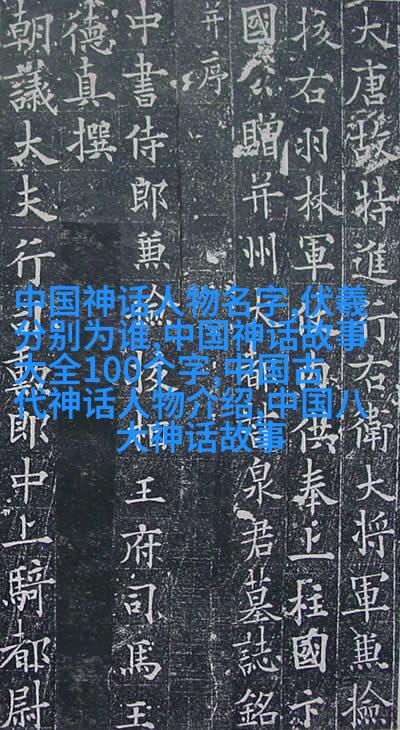 大唐故特進行右衛大將軍兼撿
挍右羽林軍仗內供奉上柱國卞
國公贈并州大都督泉君墓誌銘
并序
中書侍郎兼撿挍相王府司馬王
德真撰
朝議大夫行司勳郎中上騎都尉
中国神话人物名字 伏羲
分别为谁,中国神话故事
大全100个字,中国古
代神话人物介绍,中国八
大神话故事